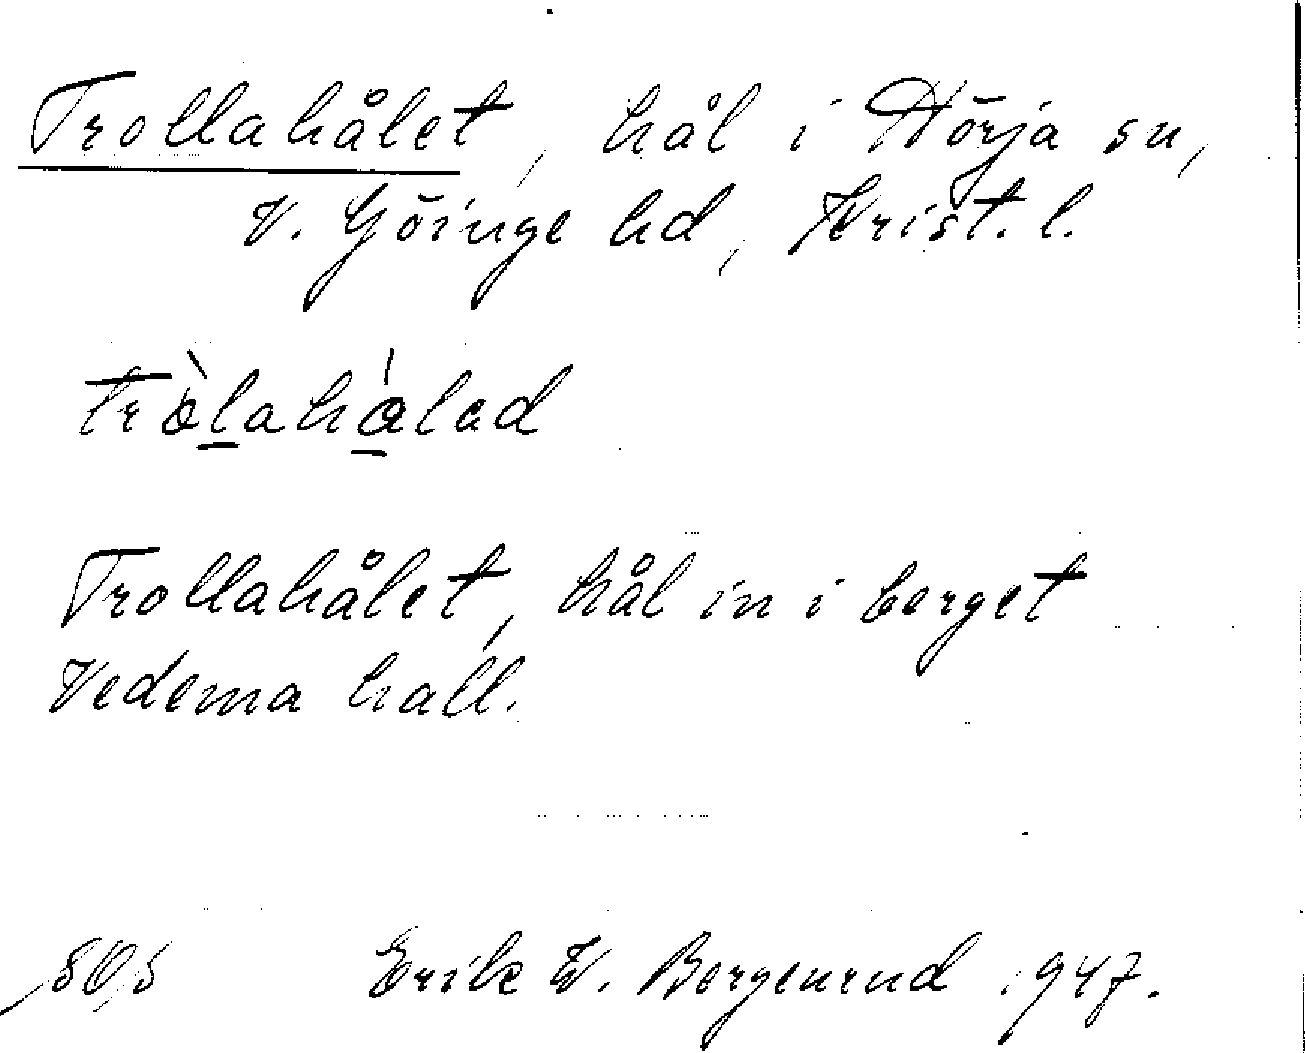 Trollahålet, hål i Hörja sn,
V. Göinge hd, Krist. l.
tròlahålad
Trollahålet, hål in i berget
Vedema hall.
Erik W. Bergenrud 1947.